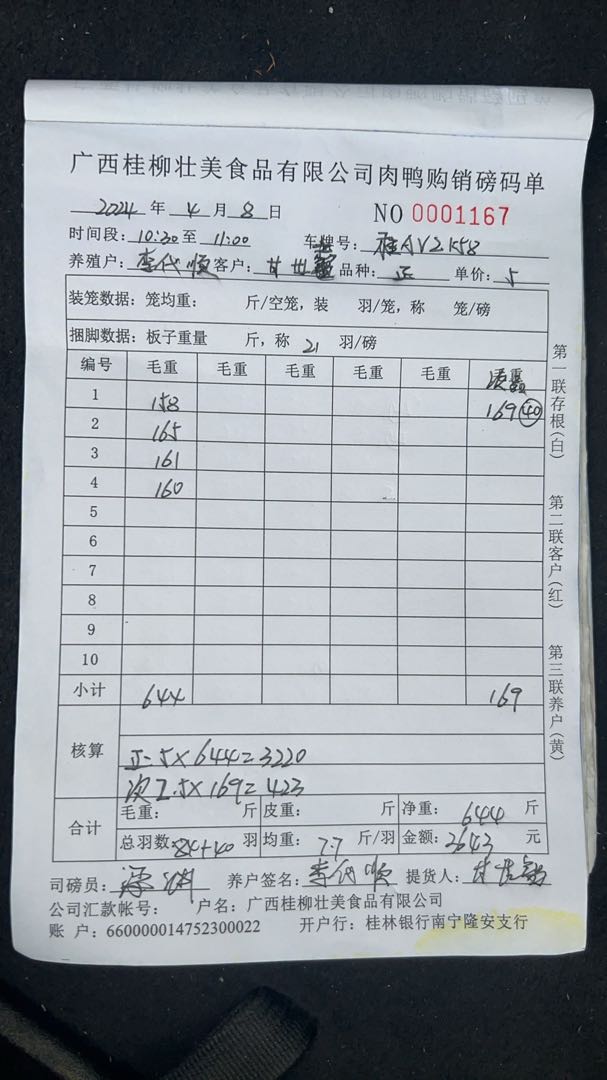 广西桂柳壮美食品有限公司肉鸭购销磅码单
2024 年 4 月 8 日 NO 0001167
时间段: 10:30 至 11:00 车牌号: 桂AV21K58
养殖户: 李代顺 客户: 甘世 品种: 正 单价: 5
装笼数据: 笼均重: 斤/空笼, 装 羽/笼, 称 笼/磅
捆脚数据: 板子重量 斤, 称 21 羽/磅
编号 毛重 毛重 毛重 毛重 毛重
1 158 169 40
2 165
3 161
4 160
5
6
7
8
9
10
小计 644 169
核算
正 5×644=3220
次 2.5×169=423
合计
毛重: 斤 皮重: 斤 净重: 644 斤
总羽数: 84+40 羽 均重: 7.7 斤/羽 金额: 3643 元
司磅员: 养户签名: 李代顺 提货人: 甘世
公司汇款帐号: 户名: 广西桂柳壮美食品有限公司
账 户: 660000014752300022 开户行: 桂林银行南宁隆安支行
第一联存根(白)
第二联客户(红)
第三联养户(黄)